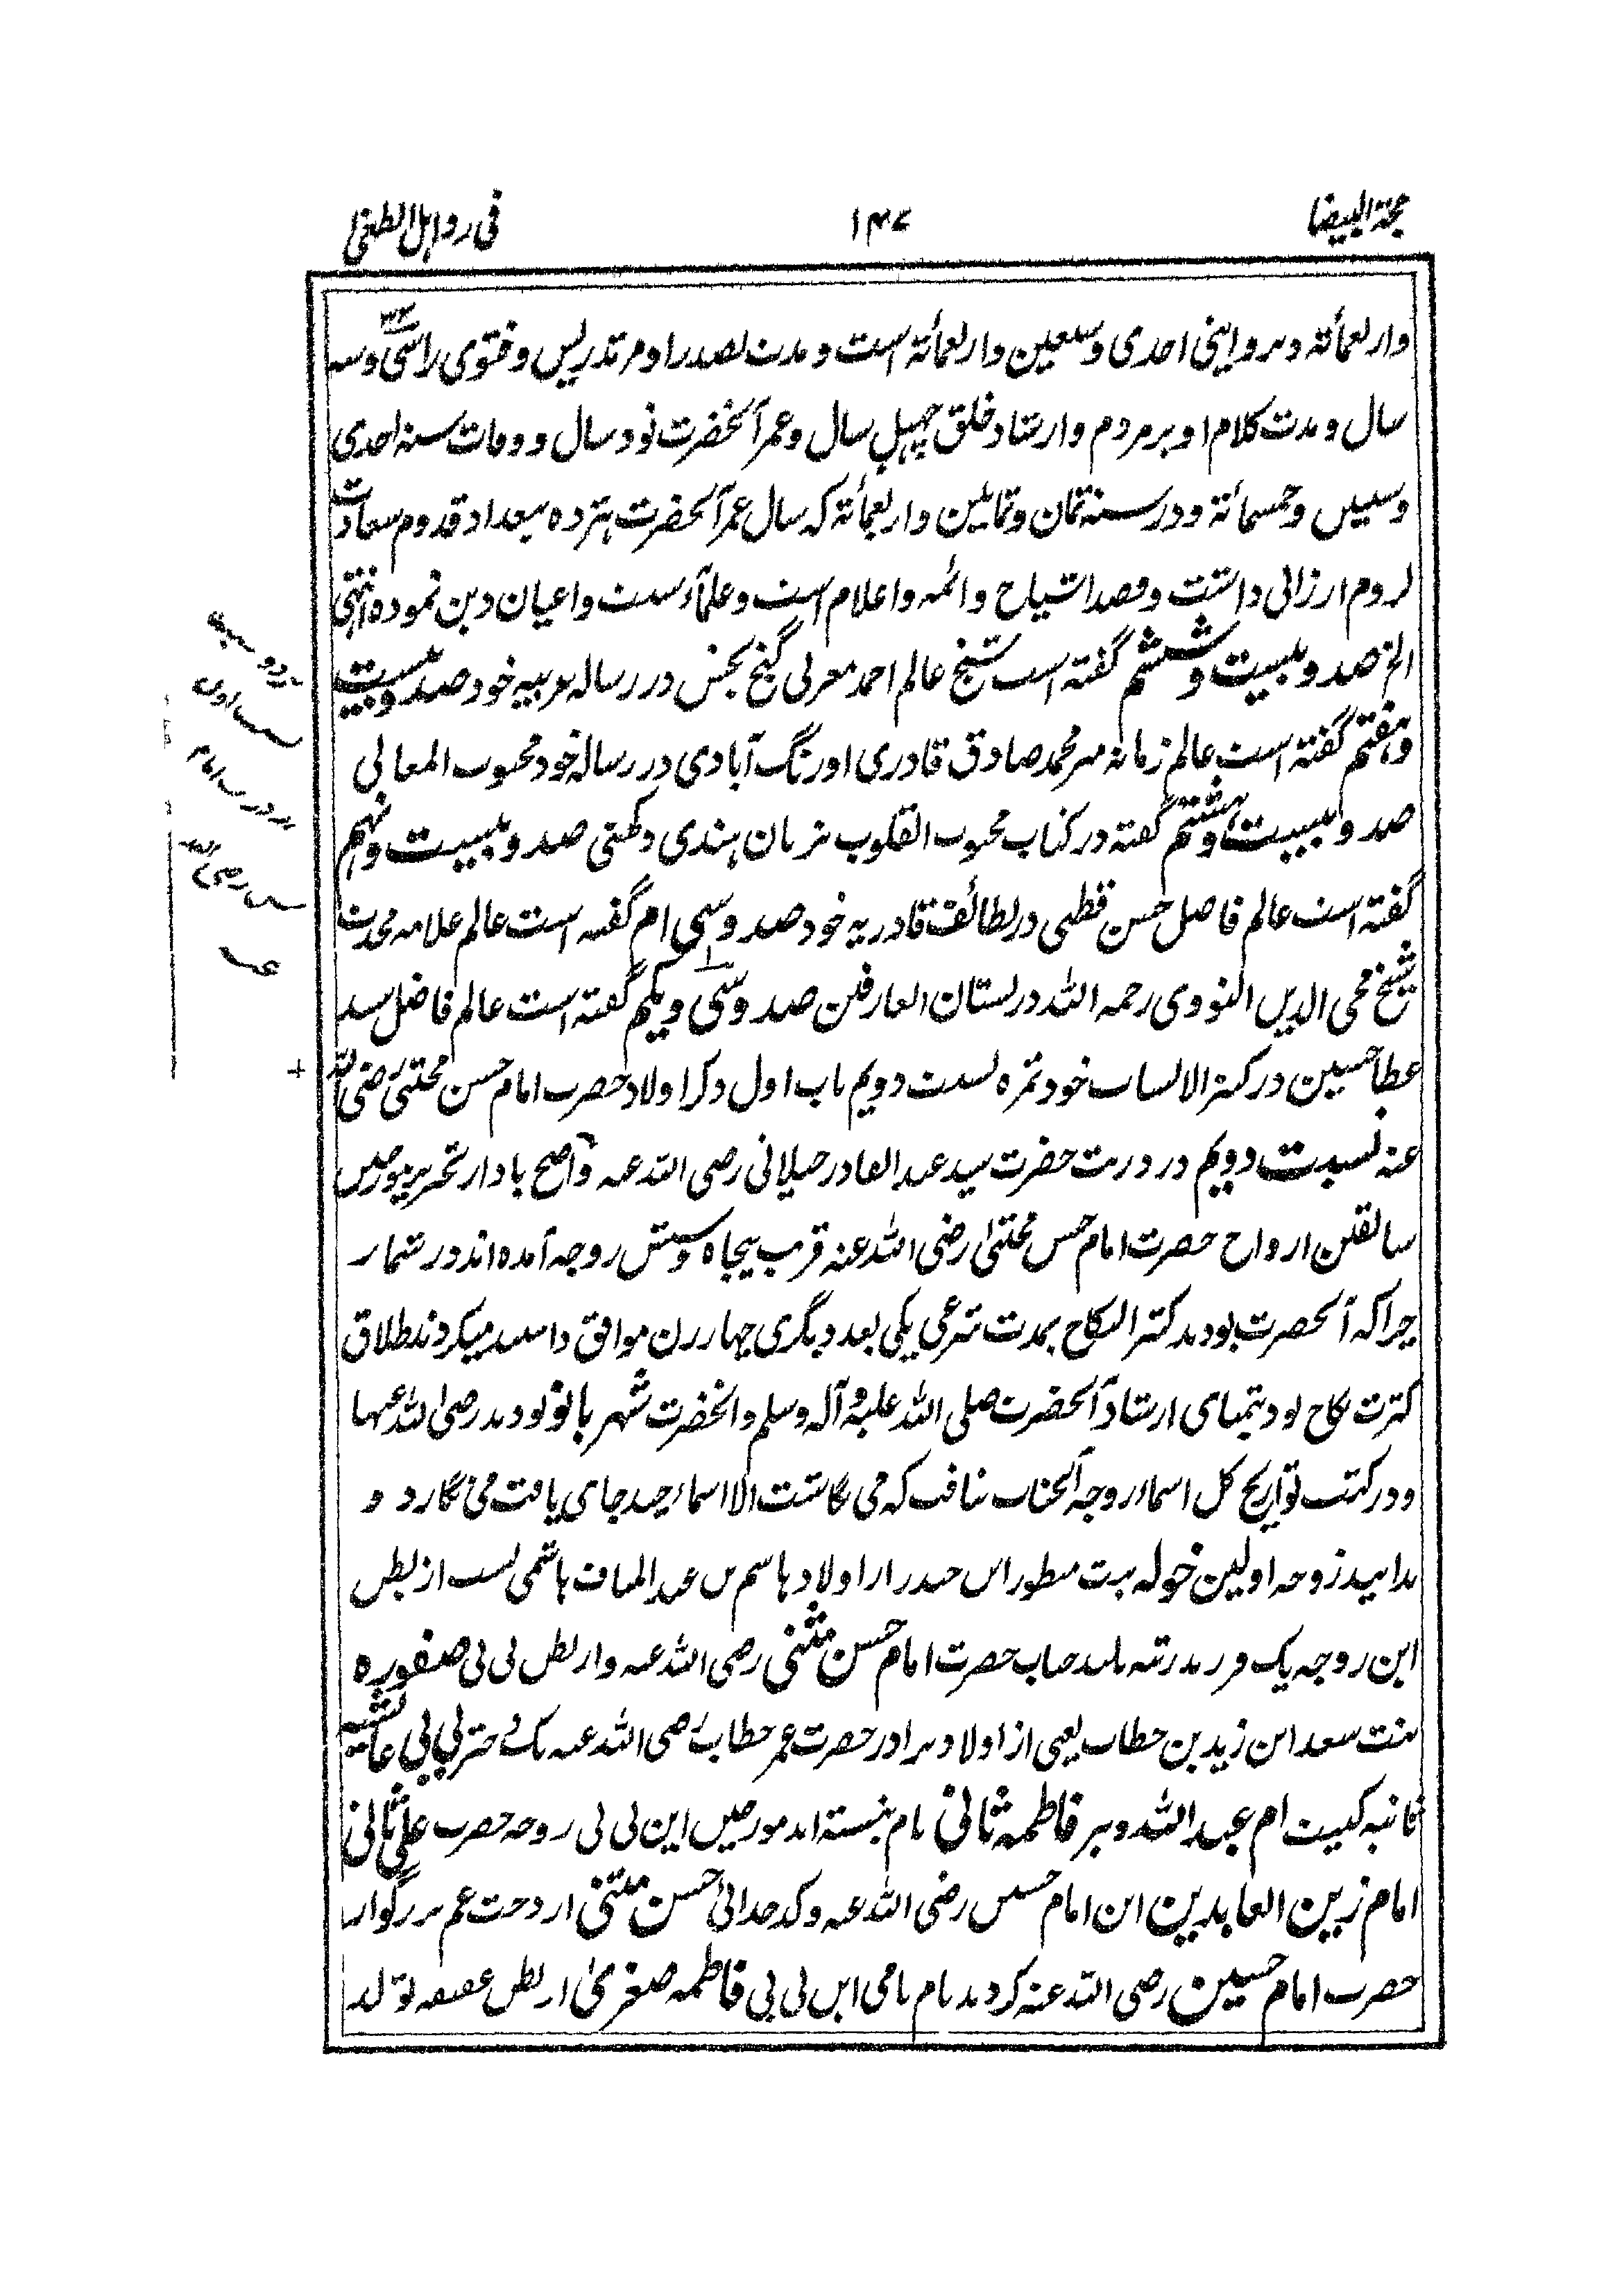 حجة البيضا ۱۴۷ فى رد اہل الطغىٰ
واربعمأتة وبروايتى احدى وسبعين واربعمأتة است ومدت تصدر او مر تدريس وفتوى را سى وسه
سال ومدت كلام او بر مردم وارشاد خلق چهل سال وعمر آنحضرت نود سال ووفات سنه احدى
وستين وخمسمأتة ودر سنه ثمان وثمانين واربعمأتة كه سال عمر آنحضرت هژده ببغداد قدوم سعادت
لزوم ارزانى داشت وقصد اشياخ وائمه واعلام است وعلمآء سنت واعيان دين نموده انتهى
الخ صد وبيست وششم گفته است شيخ عالم احمد مغربى گنج بخش در رساله عربيه خود صد وبيست
وهفتم گفته است عالم زمانه مير محمد صادق قادرى اورنگ آبادى در رساله خود محبوب المعالى
صد وبيست وهشتم گفته در كتاب محبوب القلوب بزبان هندى دكهنى صد وبيست ونهم
گفته است عالم فاضل حسن قطبى در لطائف قادريه خود صد وسى ام گفته است عالم علامه محدث
شيخ محى الدين النووى رحمه الله در بستان العارفين صد وسى ويكم گفته است عالم فاضل سيد
عطا حسين در كنز الانساب خود ثمره نسبت دويم باب اول ذكر اولاد حضرت امام حسن مجتبىٰ رضى الله
عنه نسبت دويم در ذريت حضرت سيد عبد القادر جيلانى رضى الله عنه واضح باد از تحرير مورخين
سابقين ازواج حضرت امام حسن مجتبىٰ رضى الله عنه قريب پنجاه وشش زوجه آمده اند در شمار
چرا كه آنحضرت بودند كثير النكاح بمدت شرعى يكى بعد ديگرى چهار زن موافق داشته ميكردند طلاق
كثرت نكاح بود بتمناى ارشاد آنحضرت صلى الله عليه وآله وسلم وآنحضرت شهر بانو بودند رضى الله عنها
ودر كتب تواريخ كل اسماء زوجه آنجناب نيافت كه مى نگاشت الا اسماء چند جاى يافت مى نگارد و
بدانيد زوجه اولين خوله بنت منظور ابن حيدر از اولاد هاشم بن عبد المناف هاشمى نسب از بطن
اين زوجه يك فرزند رشيد بلند جناب حضرت امام حسن مثنى رضى الله عنه واز بطن بى بى صفوره
بنت سعد ابن زيد بن خطاب يعنى از اولاد برادر حضرت عمر خطاب رضى الله عنه يك دختر بى بى عائشه
ثانيه كنيت ام عبد الله وبر فاطمه ثانى نام بنشسته اند مورخين اين بى بى زوجه حضرت على ثانى
امام زين العابدين ابن امام حسين رضى الله عنه وكد خدائى حسن مثنى از دخت عم بزرگوار
حضرت امام حسين رضى الله عنه كردند نام نامى اين بى بى فاطمه صغرىٰ از بطن عفيفه تولد